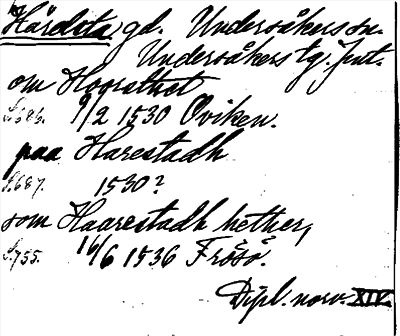 Härdsta, gd. Undersåkers sn.
Undersåkers tg. Jmt.
om Hoorsthet
S. 686. 9/2 1530 Oviken.
paa Harestadh
S. 687. 1530?
som Haarestadh hether,
S. 755. 16/6 1536 Frösö.
Dipl. norv. XIV.